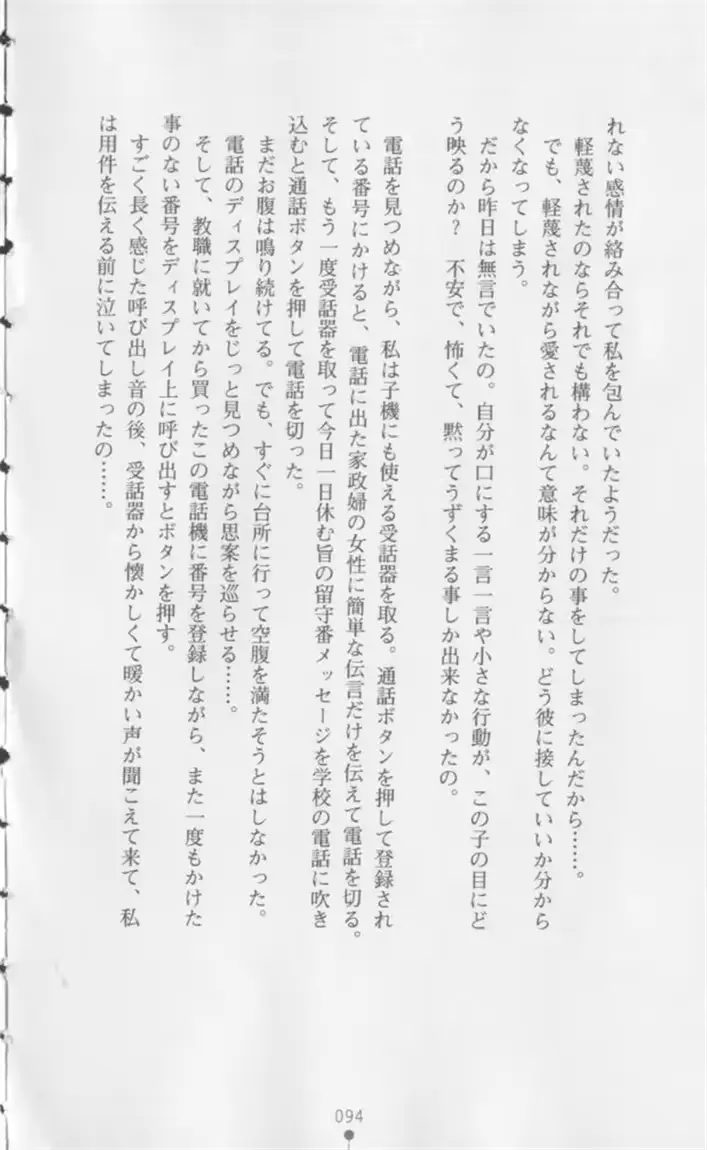 れない感情が絡み合って私を包んでいたようだった。
軽蔑されたのならそれでも構わない。それだけの事をしてしまったんだから……。
でも、軽蔑されながら愛されるなんて意味が分からない。どう彼に接していいか分から
なくなってしまう。
だから昨日は無言でいたの。自分が口にする一言一言や小さな行動が、この子の目にど
う映るのか？　不安で、怖くて、黙ってうずくまる事しか出来なかったの。
電話を見つめながら、私は子機にも使える受話器を取る。通話ボタンを押して登録され
ている番号にかけると、電話に出た家政婦の女性に簡単な伝言だけを伝えて電話を切る。
そして、もう一度受話器を取って今日一日休む旨の留守番メッセージを学校の電話に吹き
込むと通話ボタンを押して電話を切った。
まだお腹は鳴り続けてる。でも、すぐに台所に行って空腹を満たそうとはしなかった。
電話のディスプレイをじっと見つめながら思案を巡らせる……。
そして、教職に就いてから買ったこの電話機に番号を登録しながら、また一度もかけた
事のない番号をディスプレイ上に呼び出すとボタンを押す。
すごく長く感じた呼び出し音の後、受話器から懐かしくて暖かい声が聞こえて来て、私
は用件を伝える前に泣いてしまったの……。
094